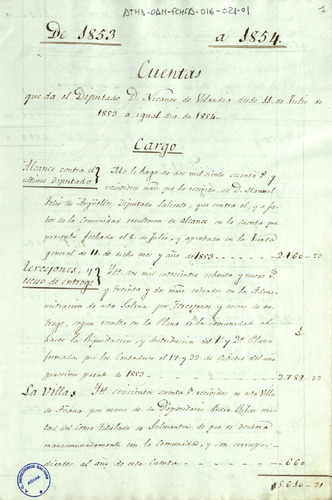 ATHA-DAH-FCHSA-016-021-01
1
De 1853 a 1854.
Cuentas
que da el Diputado D. Nicanor de Velandia desde 11 de Julio de
1853 a igual dia de 1854.
Cargo
Alcance contra el
ultimo Diputado
Me lo hago de dos mil ciento sesenta r.s y
veintidos mrs. que he recivido de D. Manuel
Velez de Arguelles Diputado Saliente, que contra el, y a fa-
bor de la Comunidad resultaron de alcance en la cuenta que
presentó fechada el 8 de Julio, y aprobada en la Junta
general de 11 de dicho mes y año de 1853 2.160 22
Tercejones, y
esceso de entroge
Itt. dos mil setecientos ochenta y nueve r.s
y treinta y dos mrs. cobrados en la Admi-
nistracion de esta Salina por Tercejones y esceso de en-
troge, segun resulta en la Plana de la comunidad al
hacer la liquidacion, y distribucion del 1.º y 2.º Plazo
formadas por los Contadores el 17 y 22 de Octubre del año
proximo pasado de 1853 2.789 32
La Villa
Itt. seiscientos sesenta r.s recividos de esta Villa
de Añana por mano de su Depositario Pedro Pablo
mitad del Censo titulado de Salmanton de que es deudora
mancomunadamente con la Comunidad, y son correspon-
dientes al año de esta Cuenta 660
5.610 21
AÑANA